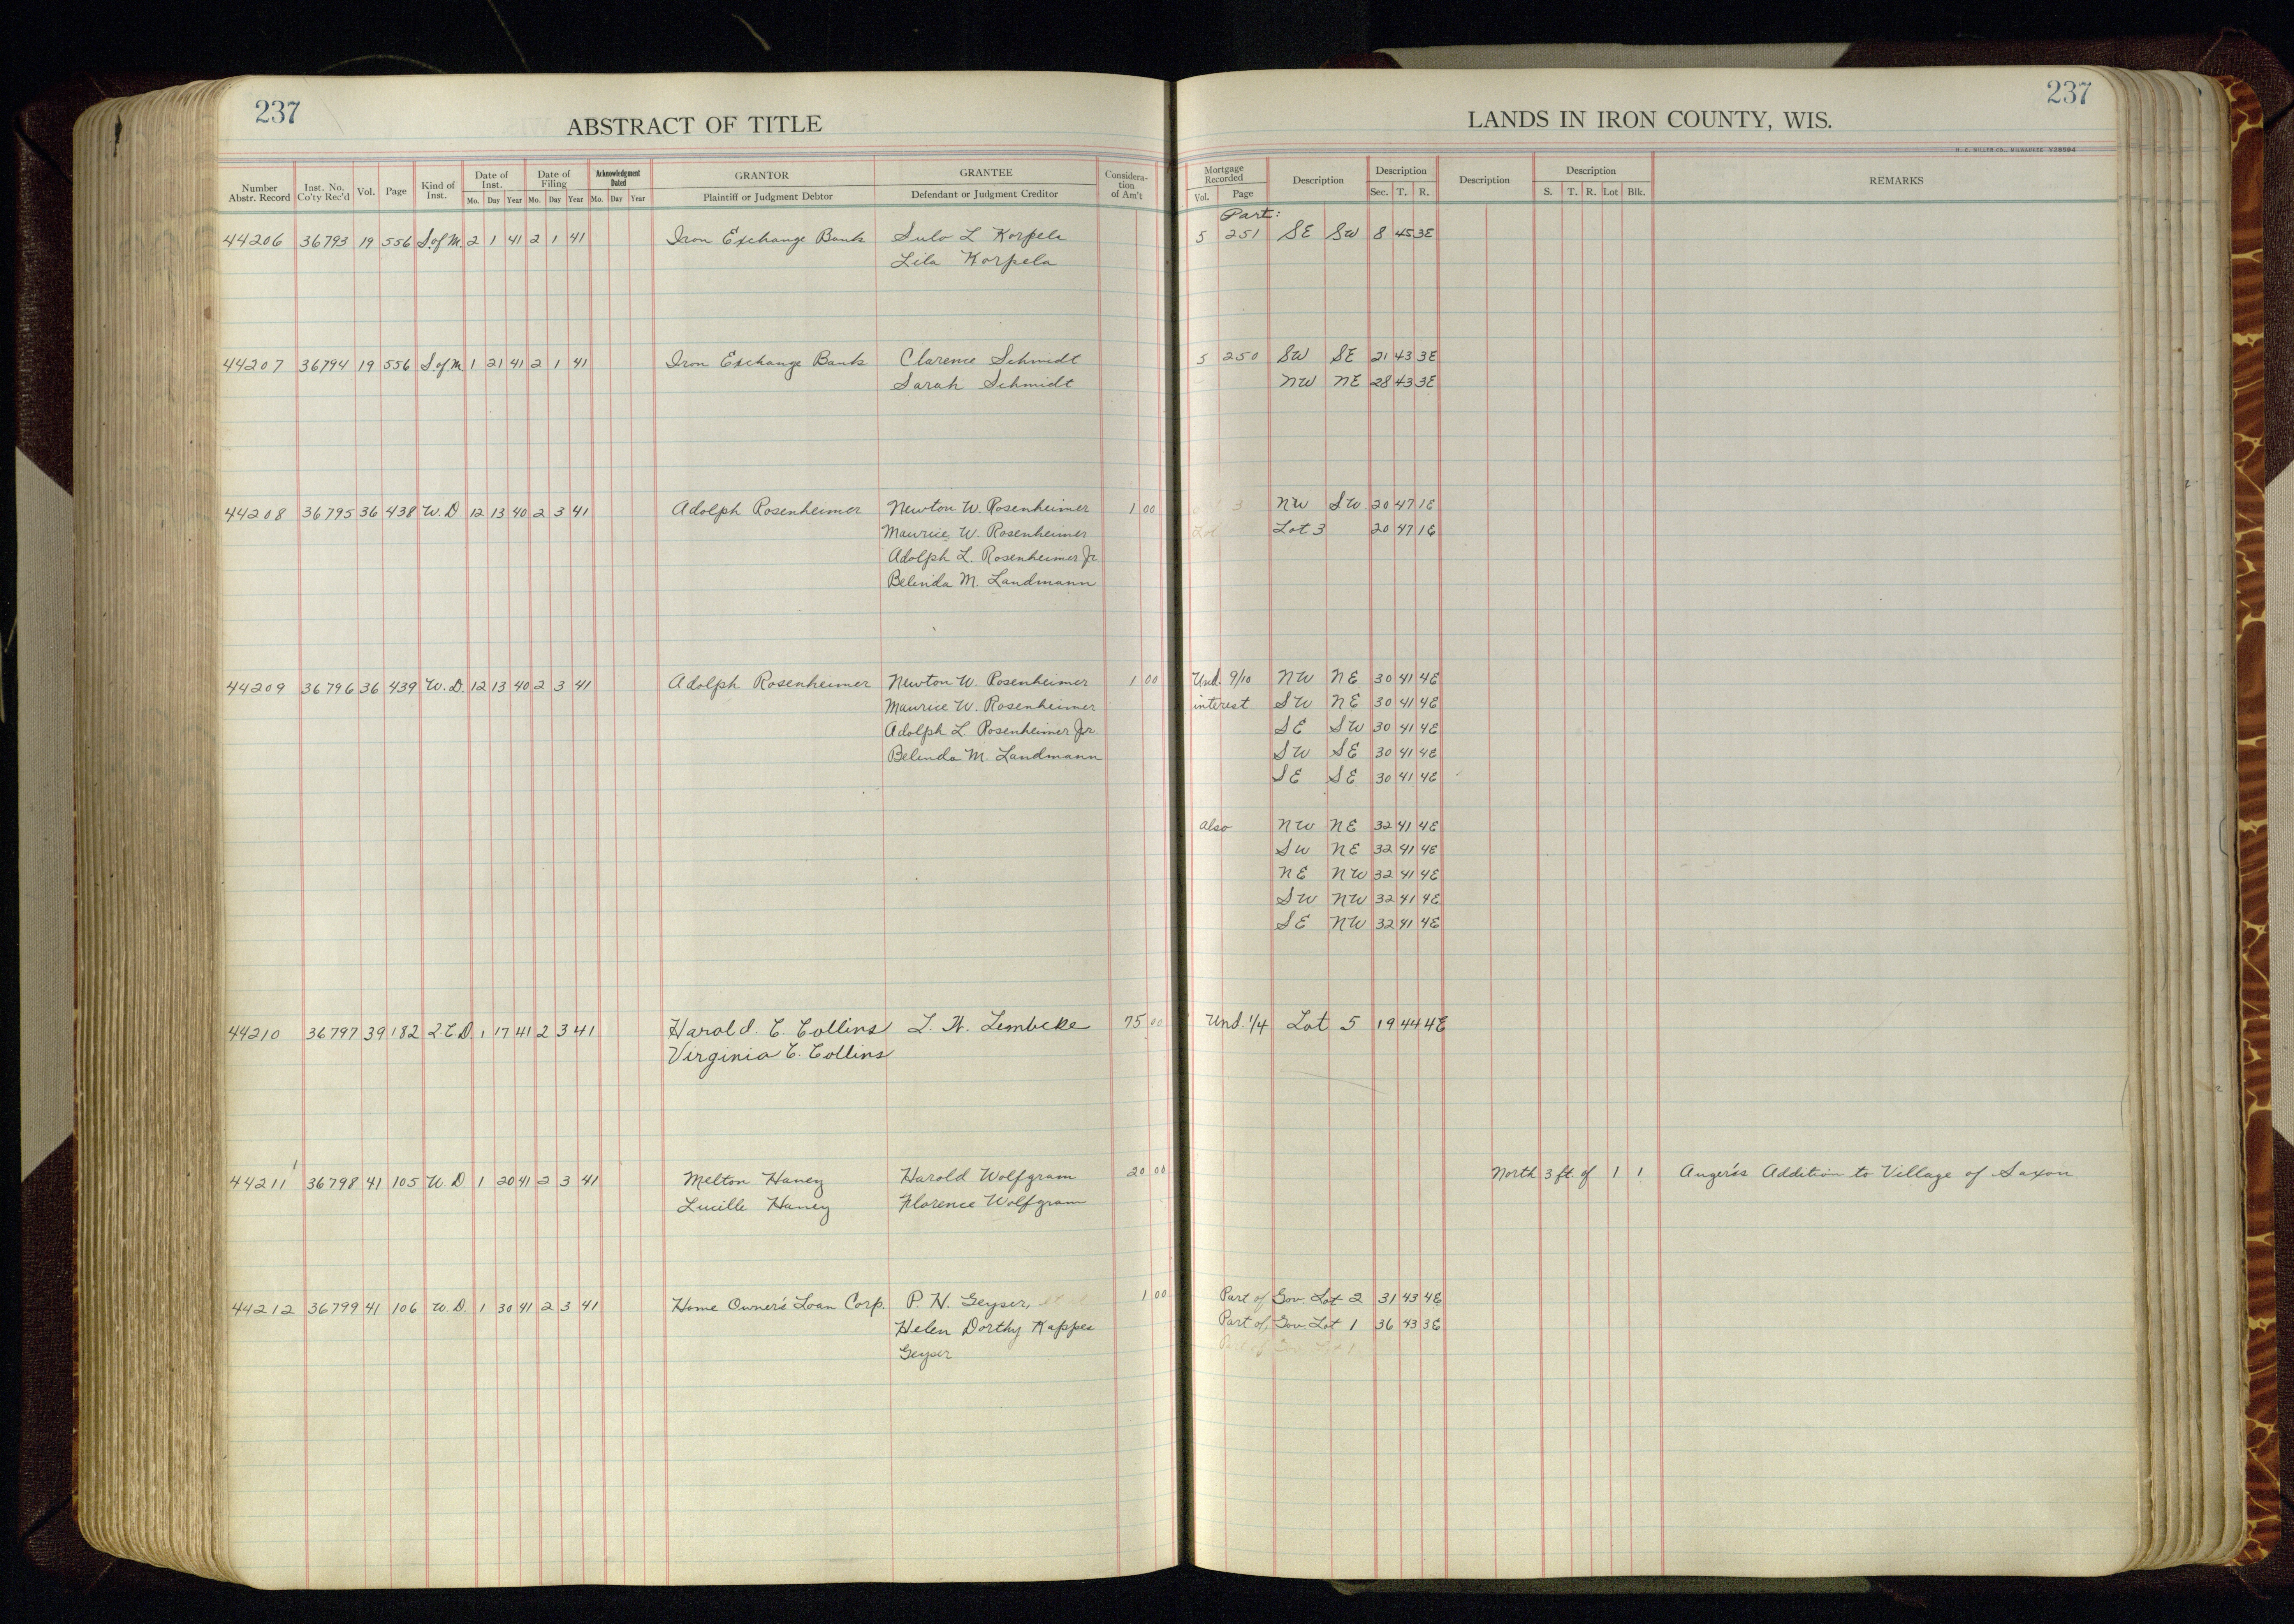 237
ABSTRACT OF TITLE
LANDS IN IRON COUNTY, WIS.
237
H. C. MILLER CO., MILWAUKEE Y28594
Number Abstr. Record Inst. No. Co'ty Rec'd Vol. Page Kind of Inst. Date of Inst. Mo. Day Year Date of Filing Mo. Day Year Acknowledgment Dated Mo. Day Year GRANTOR Plaintiff or Judgment Debtor GRANTEE Defendant or Judgment Creditor Considera-tion of Am't Mortgage Recorded Vol. Page Description Description Sec. T. R. Description Description S. T. R. Lot Blk. REMARKS
Part:
44206 36793 19 556 S.of M. 2 1 41 2 1 41 Iron Exchange Bank Sulo L Korpela 5 251 SE SW 8 45 3E
Lila Korpela
44207 36794 19 556 S.of M. 1 21 41 2 1 41 Iron Exchange Bank Clarence Schmidt 5 250 SW SE 21 43 3E
Sarah Schmidt NW NE 28 43 3E
44208 36795 36 438 W.D 12 13 40 2 3 41 Adolph Rosenheimer Newton W. Rosenheimer 1 00 3 NW SW 20 47 1E
Maurice W. Rosenheimer Lot Lot 3 20 47 1E
Adolph L. Rosenheimer Jr.
Belinda M. Landmann
44209 36796 36 439 W.D. 12 13 40 2 3 41 Adolph Rosenheimer Newton W. Rosenheimer 1 00 Und. 9/10 NW NE 30 41 4E
Maurice W. Rosenheimer interest SW NE 30 41 4E
Adolph L. Rosenheimer Jr. SE SW 30 41 4E
Belinda M. Landmann SW SE 30 41 4E
SE SE 30 41 4E
also NW NE 32 41 4E
SW NE 32 41 4E
NE NW 32 41 4E
SW NW 32 41 4E
SE NW 32 41 4E
44210 36797 39 182 2.C.D. 1 17 41 2 3 41 Harold C. Collins L. H. Lembcke 75 00 Und. 1/4 Lot 5 19 44 4E
Virginia C. Collins
44211 36798 41 105 W.D. 1 20 41 2 3 41 Melton Haney Harold Wolfgram 20 00 North 3 ft. of 1 1 Anger's Addition to Village of Saxon.
Lucille Haney Florence Wolfgram
44212 36799 41 106 W.D. 1 30 41 2 3 41 Home Owner's Loan Corp. P. H. Geyser, et al 1 00 Part of Gov. Lot 2 31 43 4E
Helen Dorthy Kappes Part of Gov. Lot 1 36 43 3E
Geyser Part of Gov. Lot 1